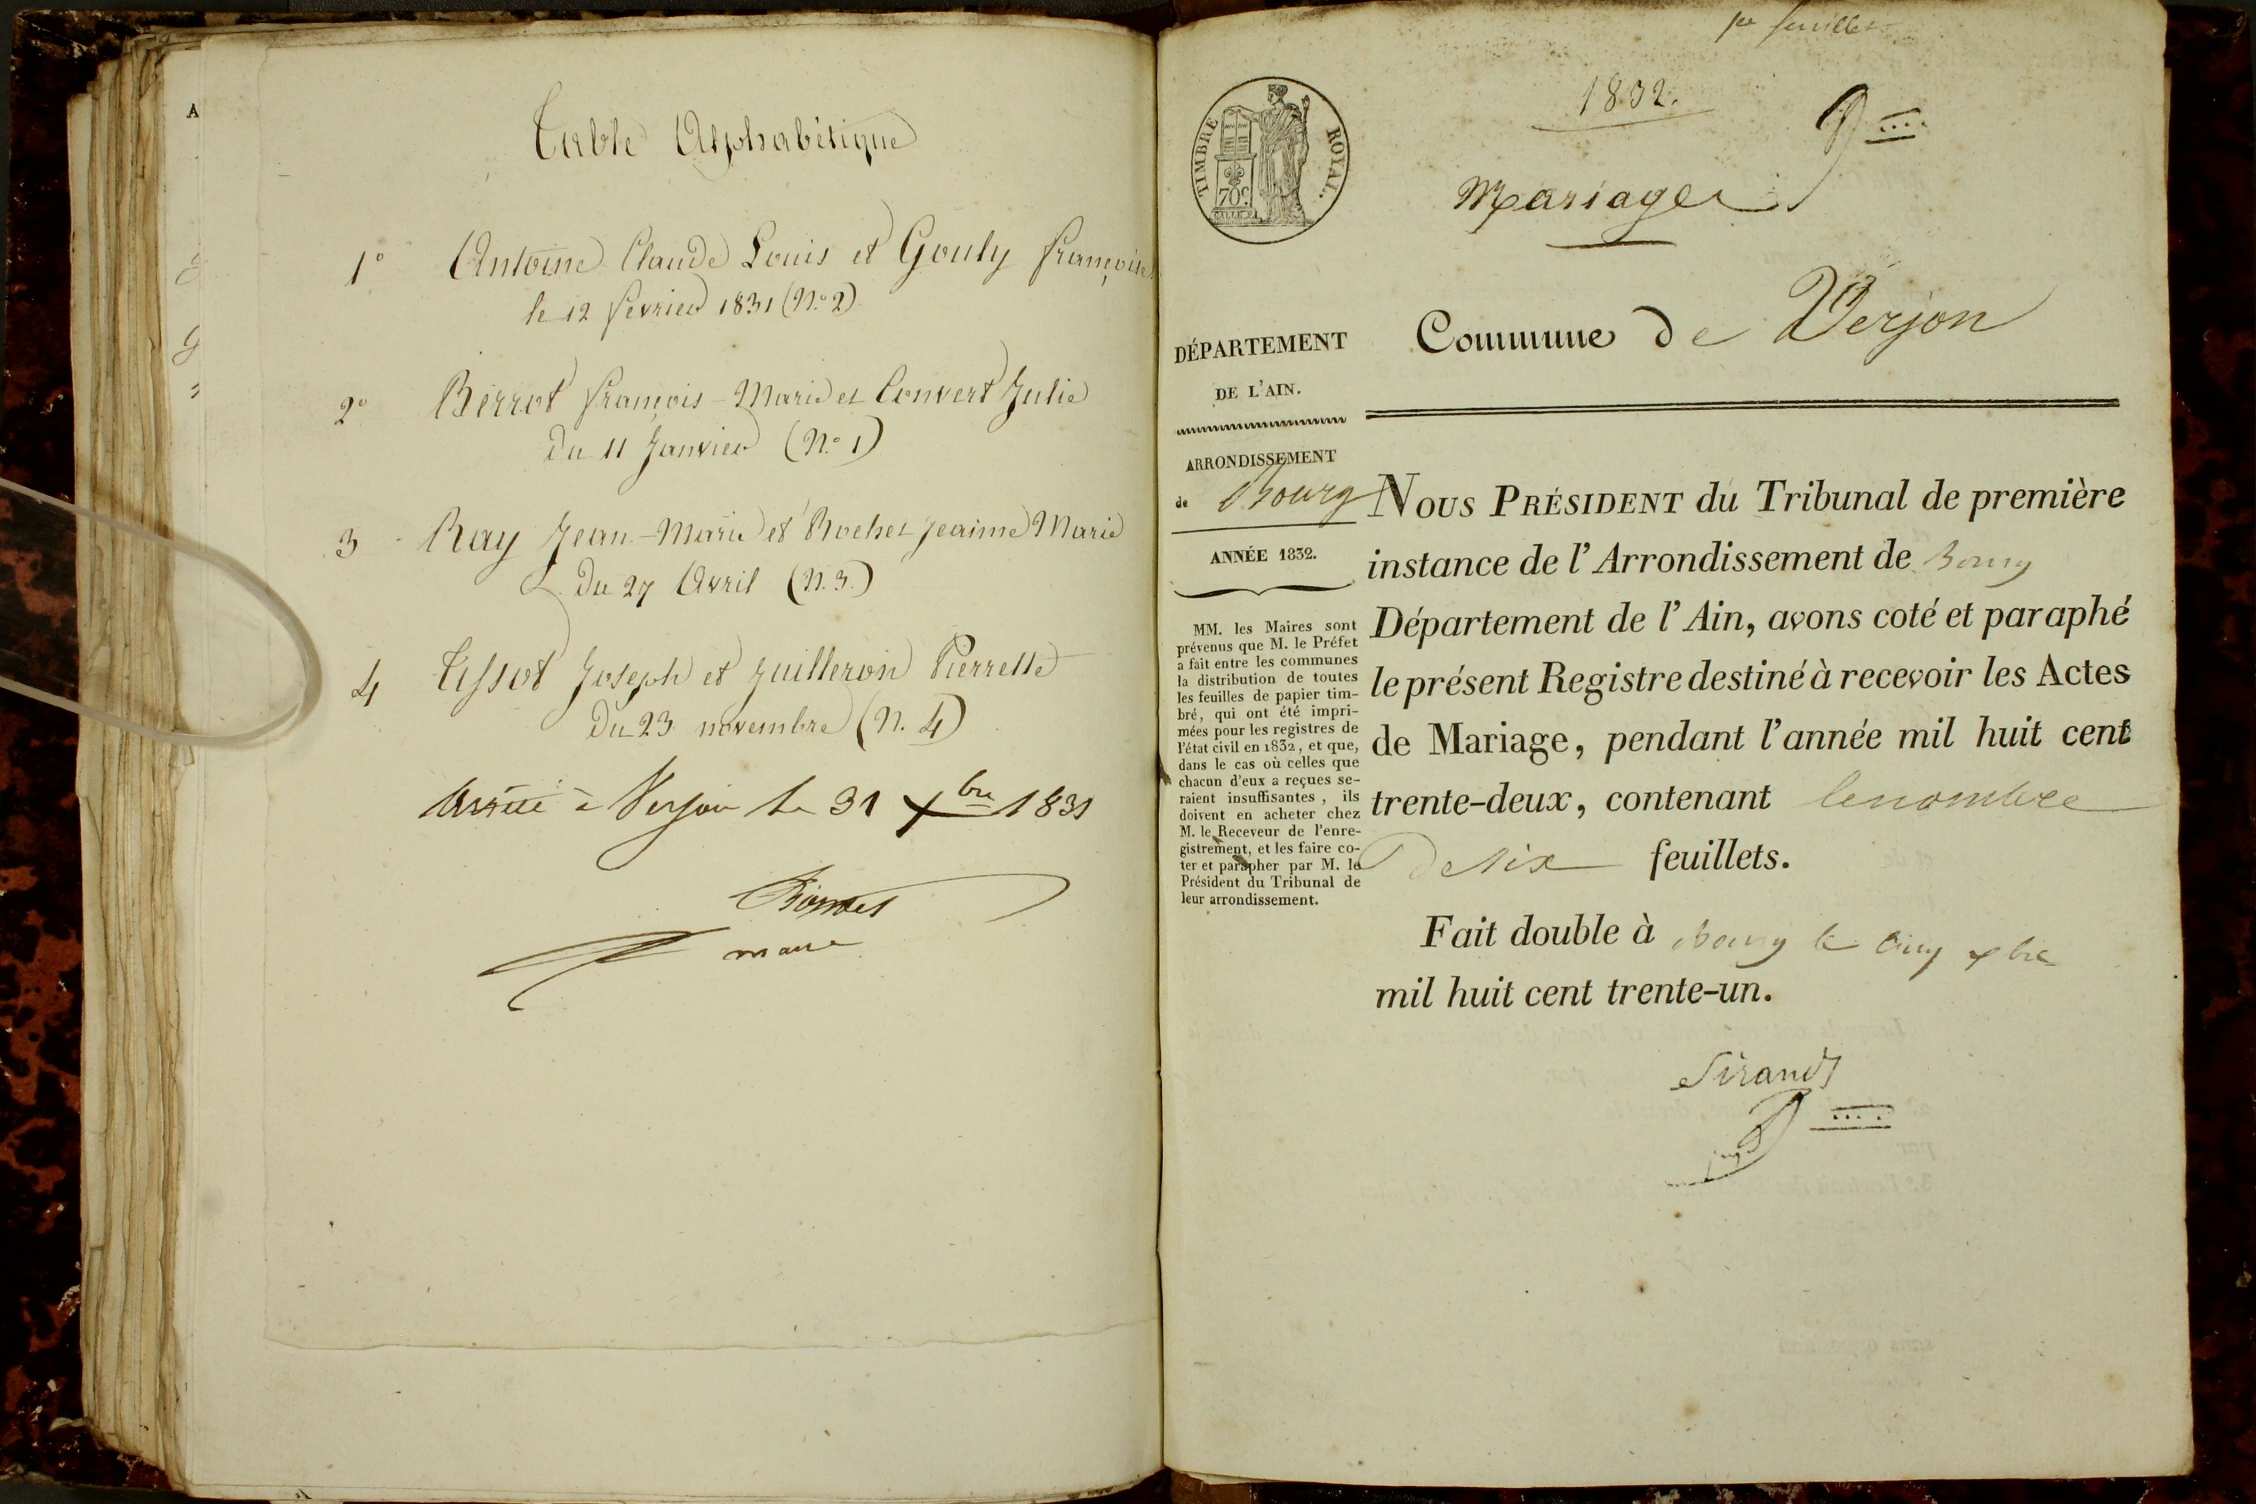 A
Table Alphabétique
1° Antoine Claude Louis et Gouly françoise
le 12 fevrier 1831 (N.° 2)
2° Berrot françois-Marie et Convert Julie
Du 11 Janvier (N.° 1)
3 Ray Jean-Marie et Rochet Jeanne Marie
Du 27 Avril (N. 3.)
4 Tissot Joseph et Juilleron Pierrette
Du 23 novembre (N. 4)
Arrêté à Verjon le 31 Xbre 1831
maire
1er feuillet
1832.
Mariages
TIMBRE ROYAL.
70c.
DÉPARTEMENT
DE L'AIN.
Commune de Verjon
ARRONDISSEMENT
de Bourg
ANNÉE 1832.
MM. les Maires sont
prévenus que M. le Préfet
a fait entre les communes
la distribution de toutes
les feuilles de papier tim-
bré, qui ont été impri-
mées pour les registres de
l'état civil en 1832, et que,
dans le cas où celles que
chacun d'eux a reçues se-
raient insuffisantes, ils
doivent en acheter chez
M. le Receveur de l'enre-
gistrement, et les faire co-
ter et parapher par M. le
Président du Tribunal de
leur arrondissement.
NOUS PRÉSIDENT du Tribunal de première
instance de l'Arrondissement de Bourg
Département de l'Ain, avons coté et paraphé
le présent Registre destiné à recevoir les Actes
de Mariage, pendant l'année mil huit cent
trente-deux, contenant le nombre
de six feuillets.
Fait double à Bourg le cinq xbre
mil huit cent trente-un.
Sirand